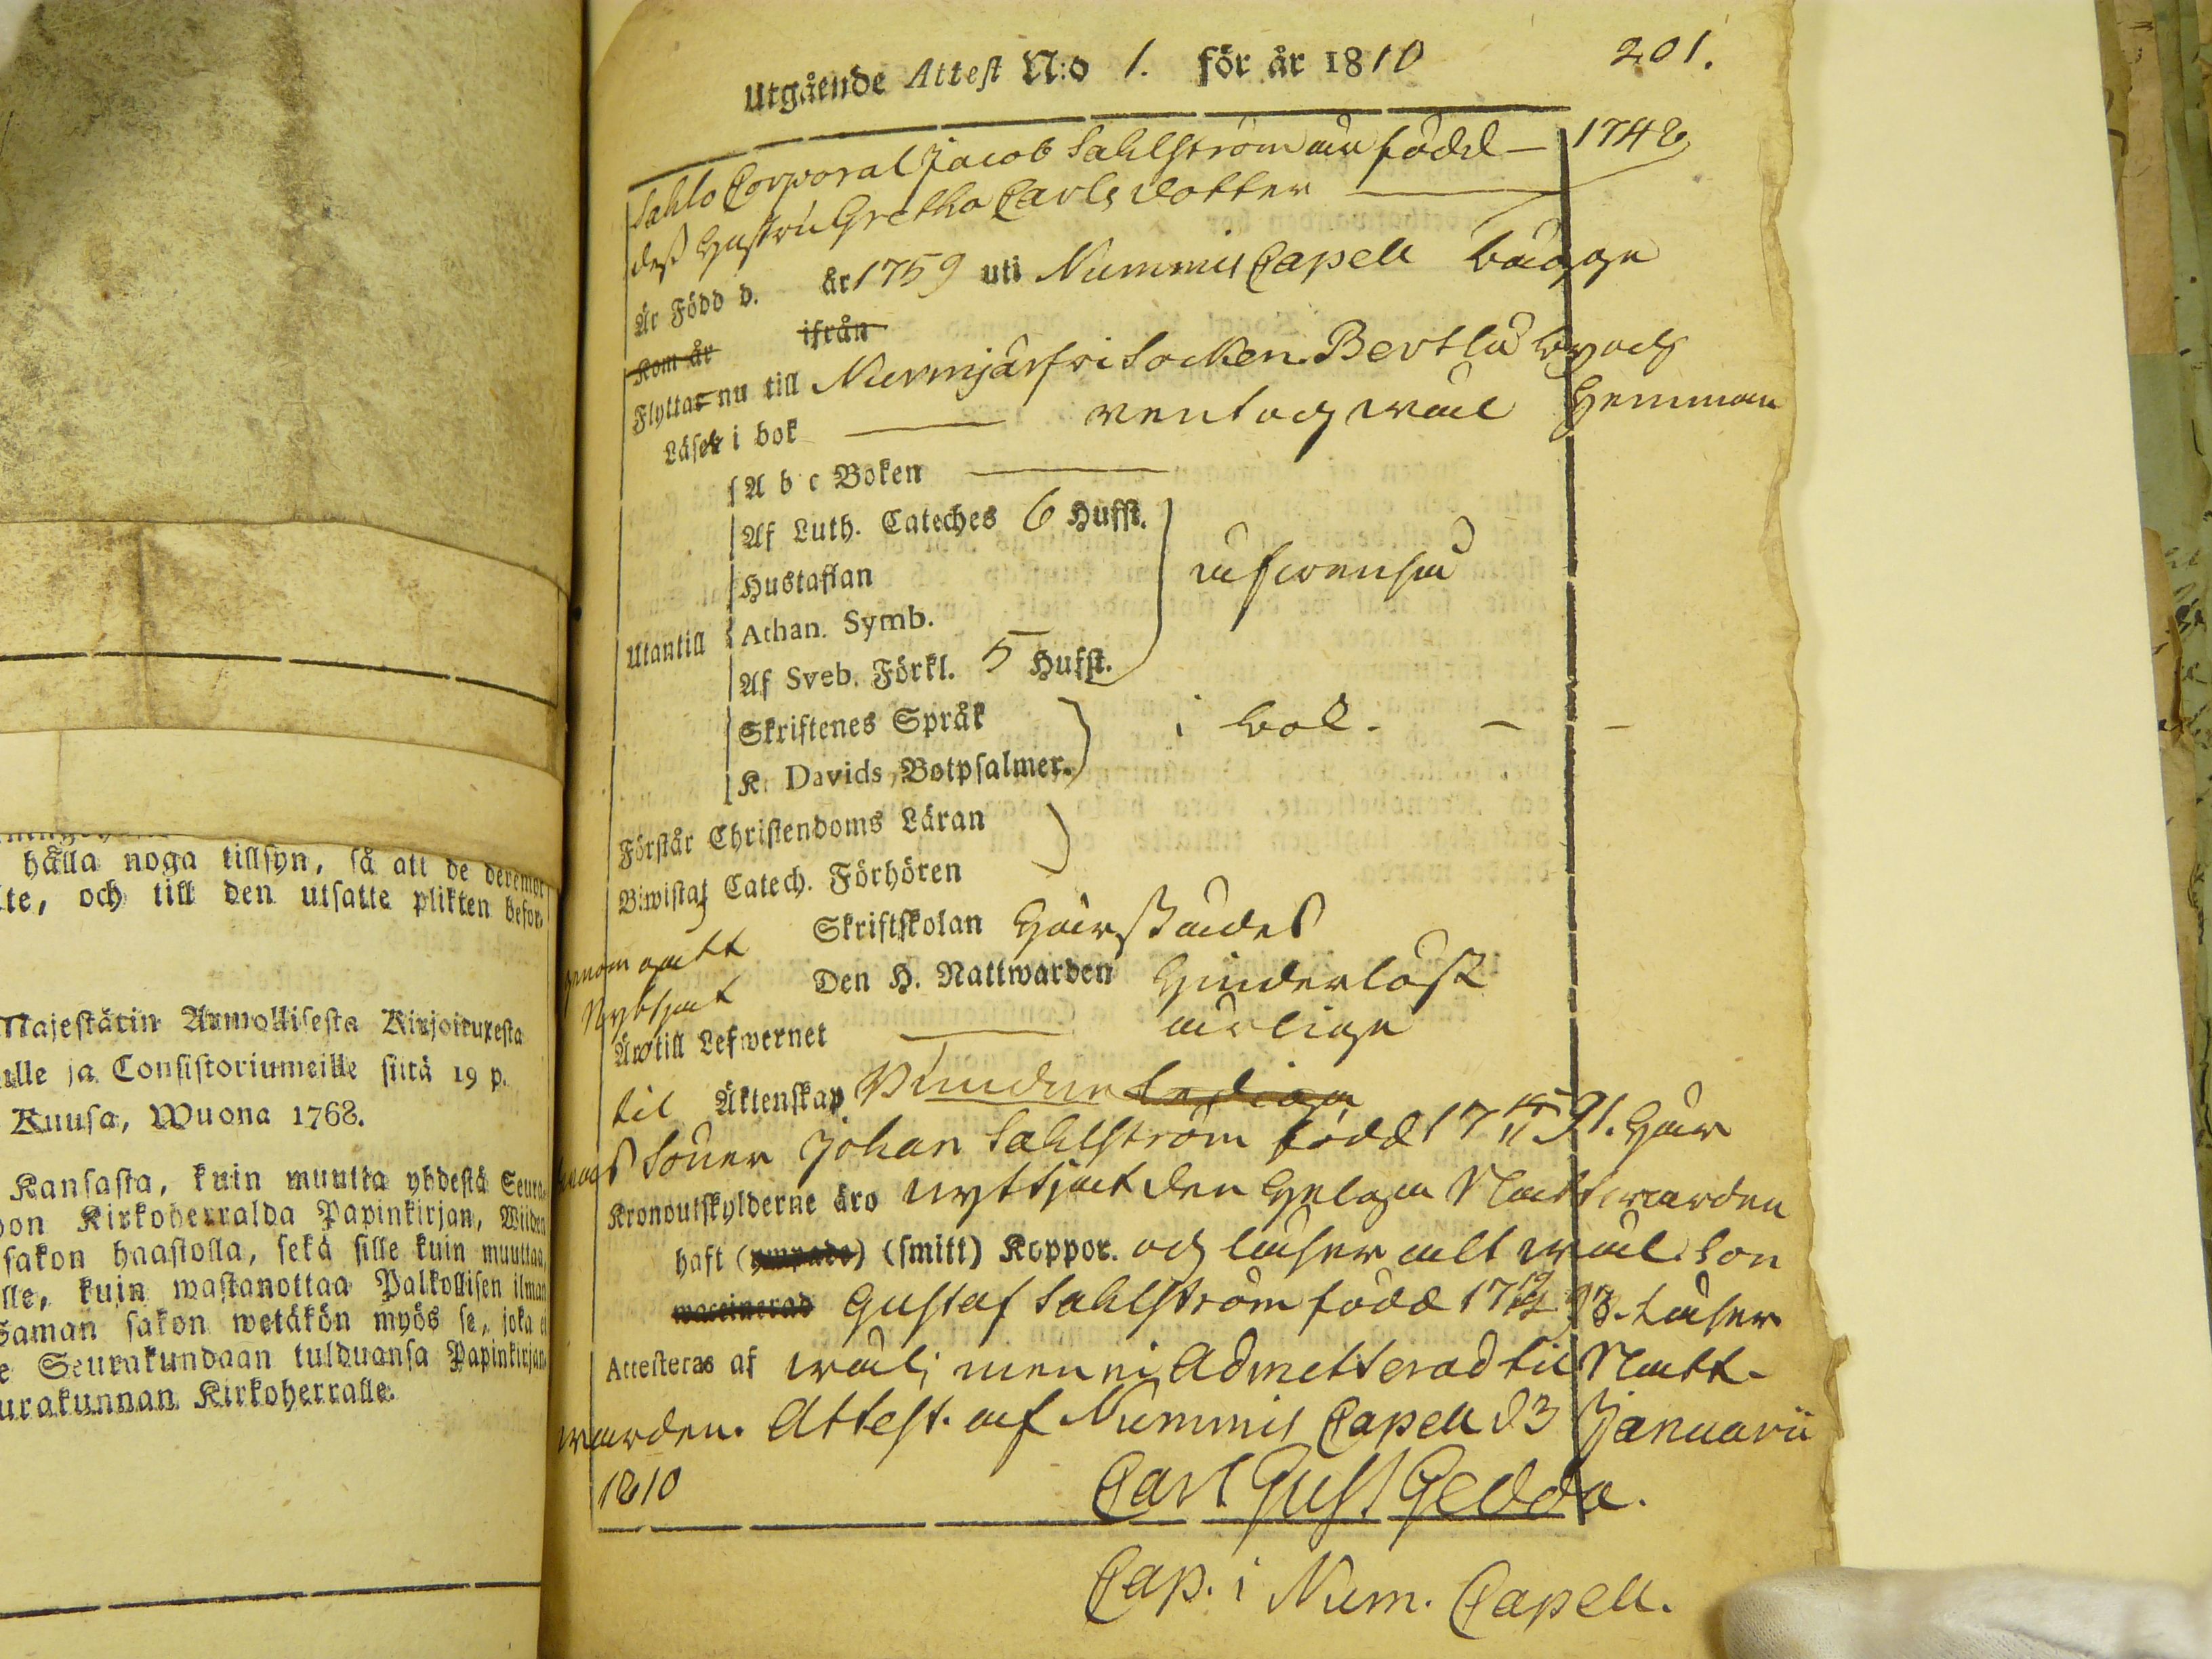 hålla noga tillsyn, så att de deremot
te, och till den utsatte plikten befor-
Majestätin Armollisesta Kirjoituxesta
ulle ja Consistoriumeille siitä 19 p.
Kuusa, Wuona 1768.
Kansasta, kuin muutta yhdestä Seura-
oon Kirkoherralda Papinkirjan, Wiiden
sakon haastolla, sekä sille kuin muuttaa,
lle, kuin wastanottaa Palkollisen ilman
Saman sakon wetäkön myös se, joka ei
e Seurakundaan tulduansa Papinkirjan
urakunnan Kirkoherralle.
201.
Utgående Attest N:o 1. för år 1810
Sahlo Corporal Jacob Sahlström är född — 1748
deß Hustru Gretha Carls dotter
Är Född d. år 1759 uti Nummis Capell bägge
Kom år ifrån
Flyttar nu till Nurmijärfvi Socken Bertla by och
Läser i bok — rent och wäl Hemman
A b c Boken —
Af Luth. Cateches 6 Hufst.
Hustaflan
Utantill Athan. Symb.
Af Sveb. Förkl. 5 Hufst.
Skriftenes Språk i bok. — —
K. Davids Botpsalmer.
Förstår Christendoms Läran
Biwistat Catech. Förhören
Skriftskolan
Den H. Nattwarden Hinderlöst
Äro till Lefwernet — ärlige
til Äktenskap Lediga
Söner Johan Sahlström född 17 91. Har
Kronoutskylderne äro nyttjat den Helga Nattwarden
haft (ympade) (smitt) Koppor. och läser alt wäl. Son
waccinerad Gustaf Sahlström född 17 93. Läser
Attesteras af wäl; men ej Admitterad til Natt-
warden. Attest. af Nummis Capell d 3 Januarii
1810 Carl Gust Gedda.
Cap. i Num. Capell.